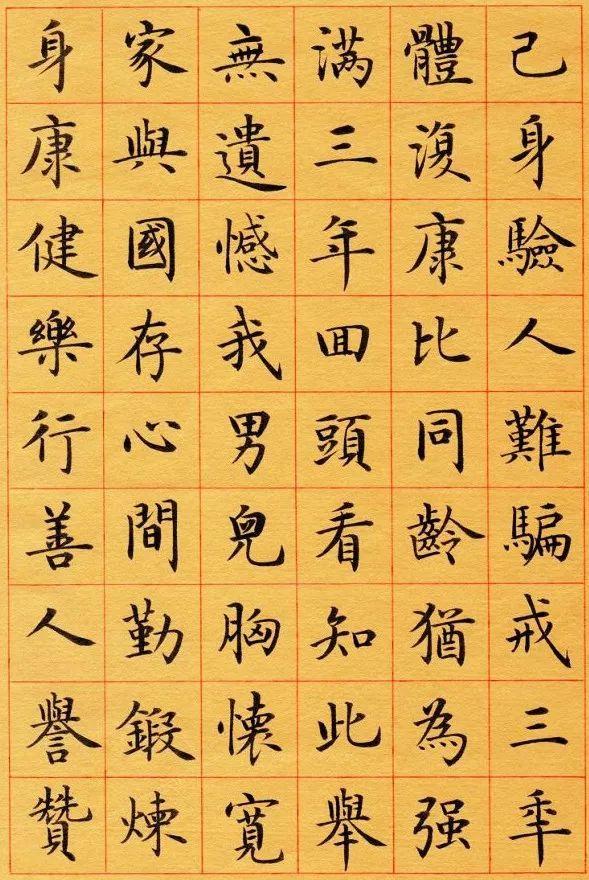 己身驗人難騙戒三年
體復康比同齡猶為强
满三年回頭看知此舉
無遺憾我男兒胸懷寬
家與國存心間勤鍛煉
身康健樂行善人譽贊